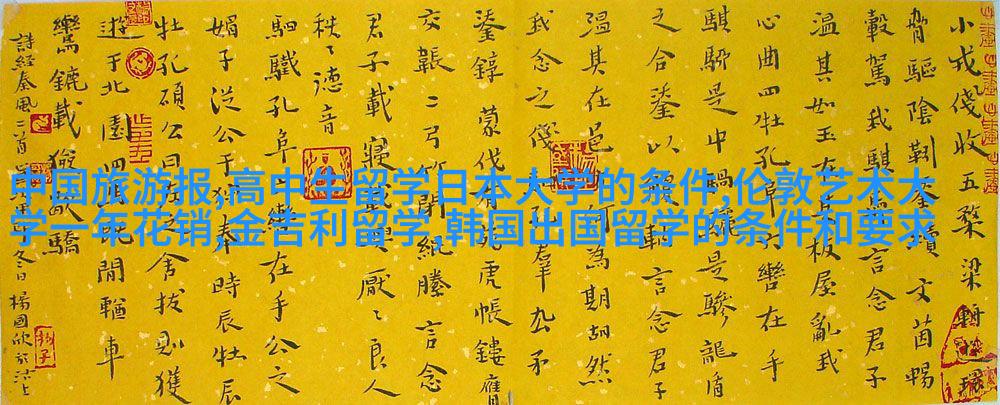 中国旅游报,高中生留学日本大学的条件,伦敦艺术大
学一年花销,金吉利留学,韩国出国留学的条件和要求
小戎俴收五楘梁輈游環
脅驅陰靷鋈續文茵暢
轂駕我騏馵言念君子
溫其如玉在其板屋亂我
心曲四牡孔阜六轡在手
騏駵是中騧驪是驂龍盾
之合鋈以觼軜言念君子
溫其在邑方何為期胡然
我念之俴駟孔羣厹矛
鋈錞蒙伐有苑虎帳鏤膺
交韔二弓竹閉緄縢言念
君子載寢載興厭〻良人
秩〻德音
駟驖孔阜六轡在手公之
媚子從公于狩奉時辰牡辰
牡孔碩公曰左之舍拔則獲
遊于北園四馬既閒輶車
鸞鑣載獫歇驕
詩經秦風二首 冬日楊國欣於沽上